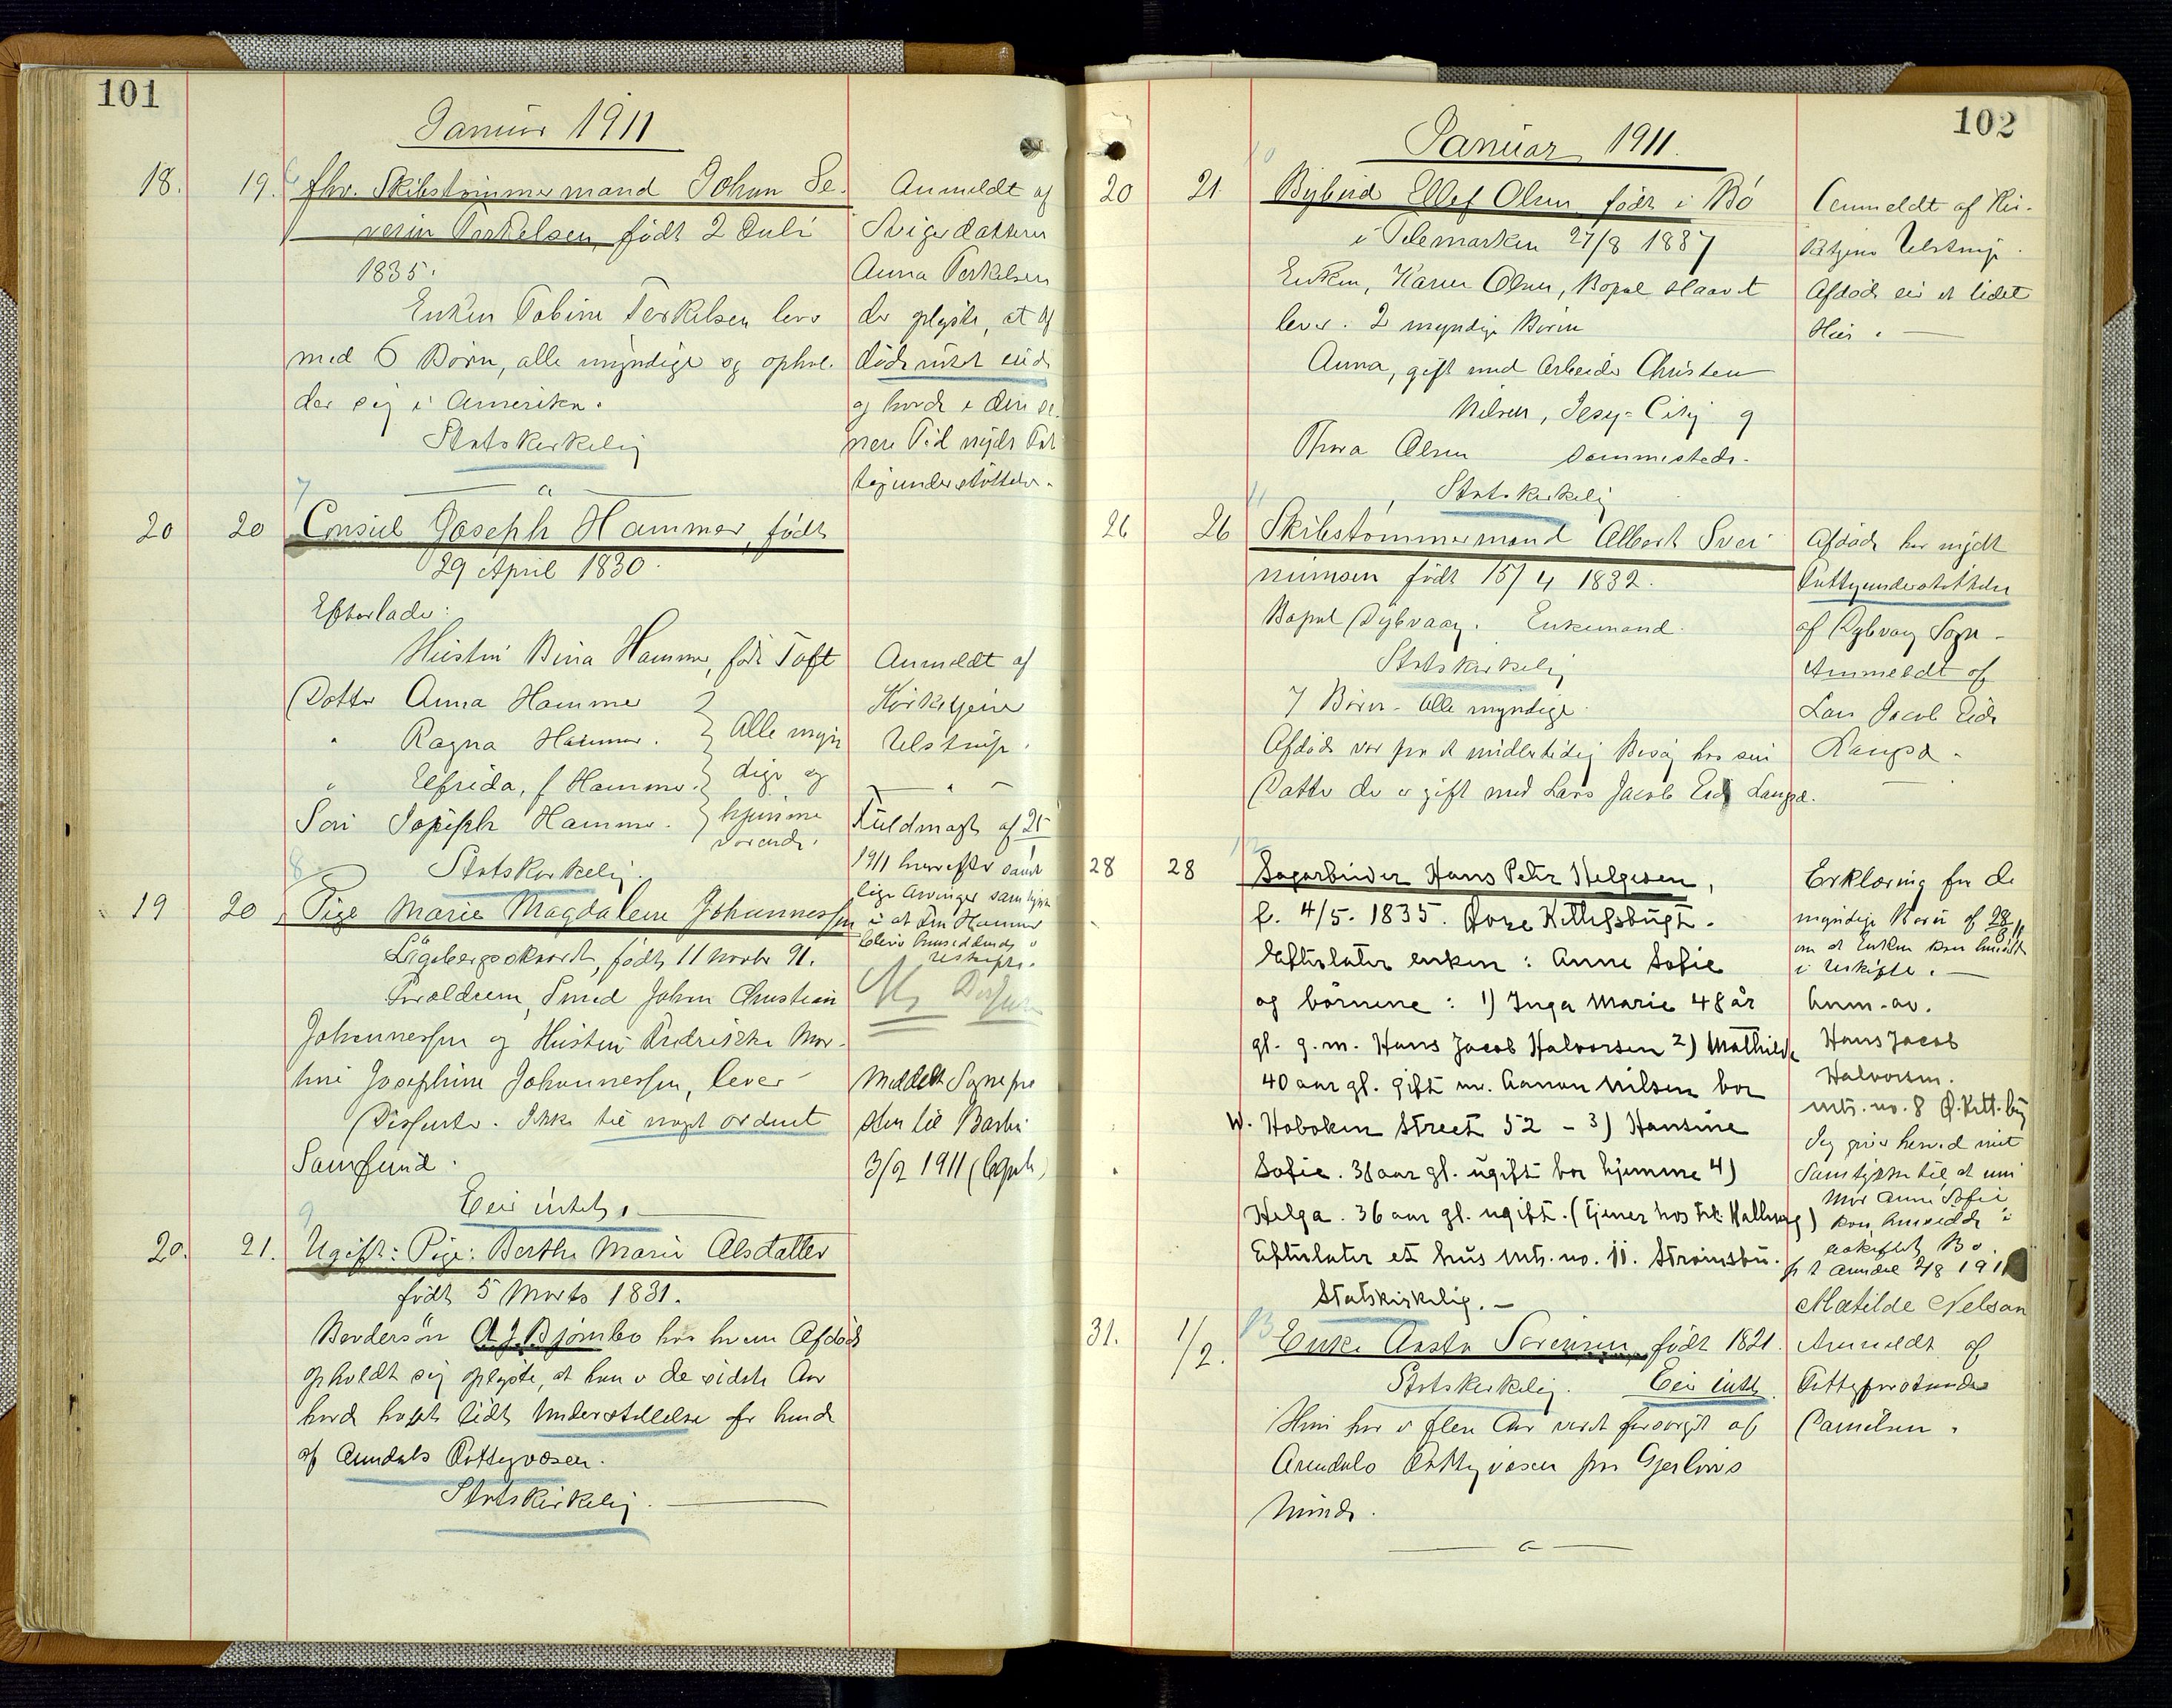 101
Januar 1911
18. 19. 6 fhv. Skibstømmermand Johan Se-
verin Terkelsen, født 2 Juli
1835.
Enken Tobine Terkelsen lever
med 6 Børn, alle myndige og ophol-
der sig i Amerika.
Statskirkelig
Anmeldt af
Svigerdatteren
Anna Terkelsen
der oplyste, at Af
døde intet eiede
og havde i den se-
nere Tid nydt Fat
tigunderstøttelse.
7
20 20 Consul Joseph Hammer, født
29 April 1830.
Efterlader:
Hustru Bina Hammer, født Toft
Datter Anna Hammer
" Ragna Hammer.
" Elfrida, f Hammer.
Søn Joseph Hammer.
Alle myn
dige og
hjemme
værende.
Statskirkelig.
Anmeldt af
Kirketjener
Ulstrup.
Fuldmagt af 25
1911 hvorefter samt
lige Arvinger samtykke
i at Fru Hammer
bliver hensiddende i
uskifte.
8
19 20 Pige Marie Magdalene Johannessen
Løgebergsskaaret, født 11 Novbr 91.
Forældrene, Smed Johan Christian
Johannessen og Hustru Fredrikke Mar-
tine Josephine Johannessen, lever
Dissenter. Ikke til noget ordnet
Samfund.
Eier intet.
Meddelt Sognepre
sten til Barbu
3/2 1911
9
20. 21. Ugift: Pige: Berthe Marie Olsdatter
født 5 Marts 1831.
A J Bjørnbo hos hvem Afdøde
opholdt sig oplyste, at hun i de sidste Aar
havde havt lidt Understøttelse for hende
af Arendals Fattigvæsen.
Statskirkelig.
102
Januar 1911.
10
20 21. Bybud Ellef Olsen, født i Bø
i Telemarken 27/8 1837
Enken, Karen Olsen, Bopæl
lever. 2 myndige Børn
Anna, gift med Arbeider Christen
Nilsen, Jesy-City og
Thora Olsen sammesteds.
Statskirkelig
Anmeldt af Kir-
ketjener Ulstrup.
Afdøde eier et lidet
Hus.
11
26 26 Skibstømmermand Albert Svei
nunsen født 15/4 1832.
Bopæl Dybvaag. Enkemand.
Statskirkelig
7 Børn - alle myndige.
Afdøde var paa et midlertidig Besøg hos sin
Datter der er gift med Lars Jacob Eide Langsæ.
Afdøde har nydt
Fattigunderstøttelse
af Dybvaag Sogn -
Anmeldt af
Lars Jacob Eide
Langsæ.
12
28 28 Sagarbeider Hans Peter Helgesen,
f. 4/5. 1835. Øvre Kittelsbugt.
Efterlater enken: Anne Sofie
og børnene: 1) Inga Marie 48 år
gl. g.m. Hans Jacob Halvorsen 2) Mathilde
40 aar gl. gift m. Aanon Nilsen bor
W. Hoboken Street 52 - 3) Hansine
Sofie. 38 aar gl. ugift bor hjemme 4)
Helga. 36 aar gl. ugift. (tjener hos Frk. Kallevig)
Efterlater et hus mtr. no. 11. Strømsbu.
Statskirkelig. -
Erklæring fra de
myndige Børn af 28/8 11
om at Enken kan hensidde
i uskifte. -
Anm. av.
Hans Jacob
Halvorsen.
mtr. no. 8 Ø. Kitt. bug
Jeg giver herved mit
Samtykke til at min
Mor Anne Sofie
kan hensidde i
uskiftet Bo.
p t Arendal 2/8 1911
Matilde Nelson
13
31. 1/2. Enke Aaste Sørensen, født 1821.
Statskirkelig. Eier intet.
Hun har i flere Aar været forsørget af
Arendals Fattigvæsen paa Gjerløvs
Minde.
Anmeldt af
Fattigforstander
Danielsen.